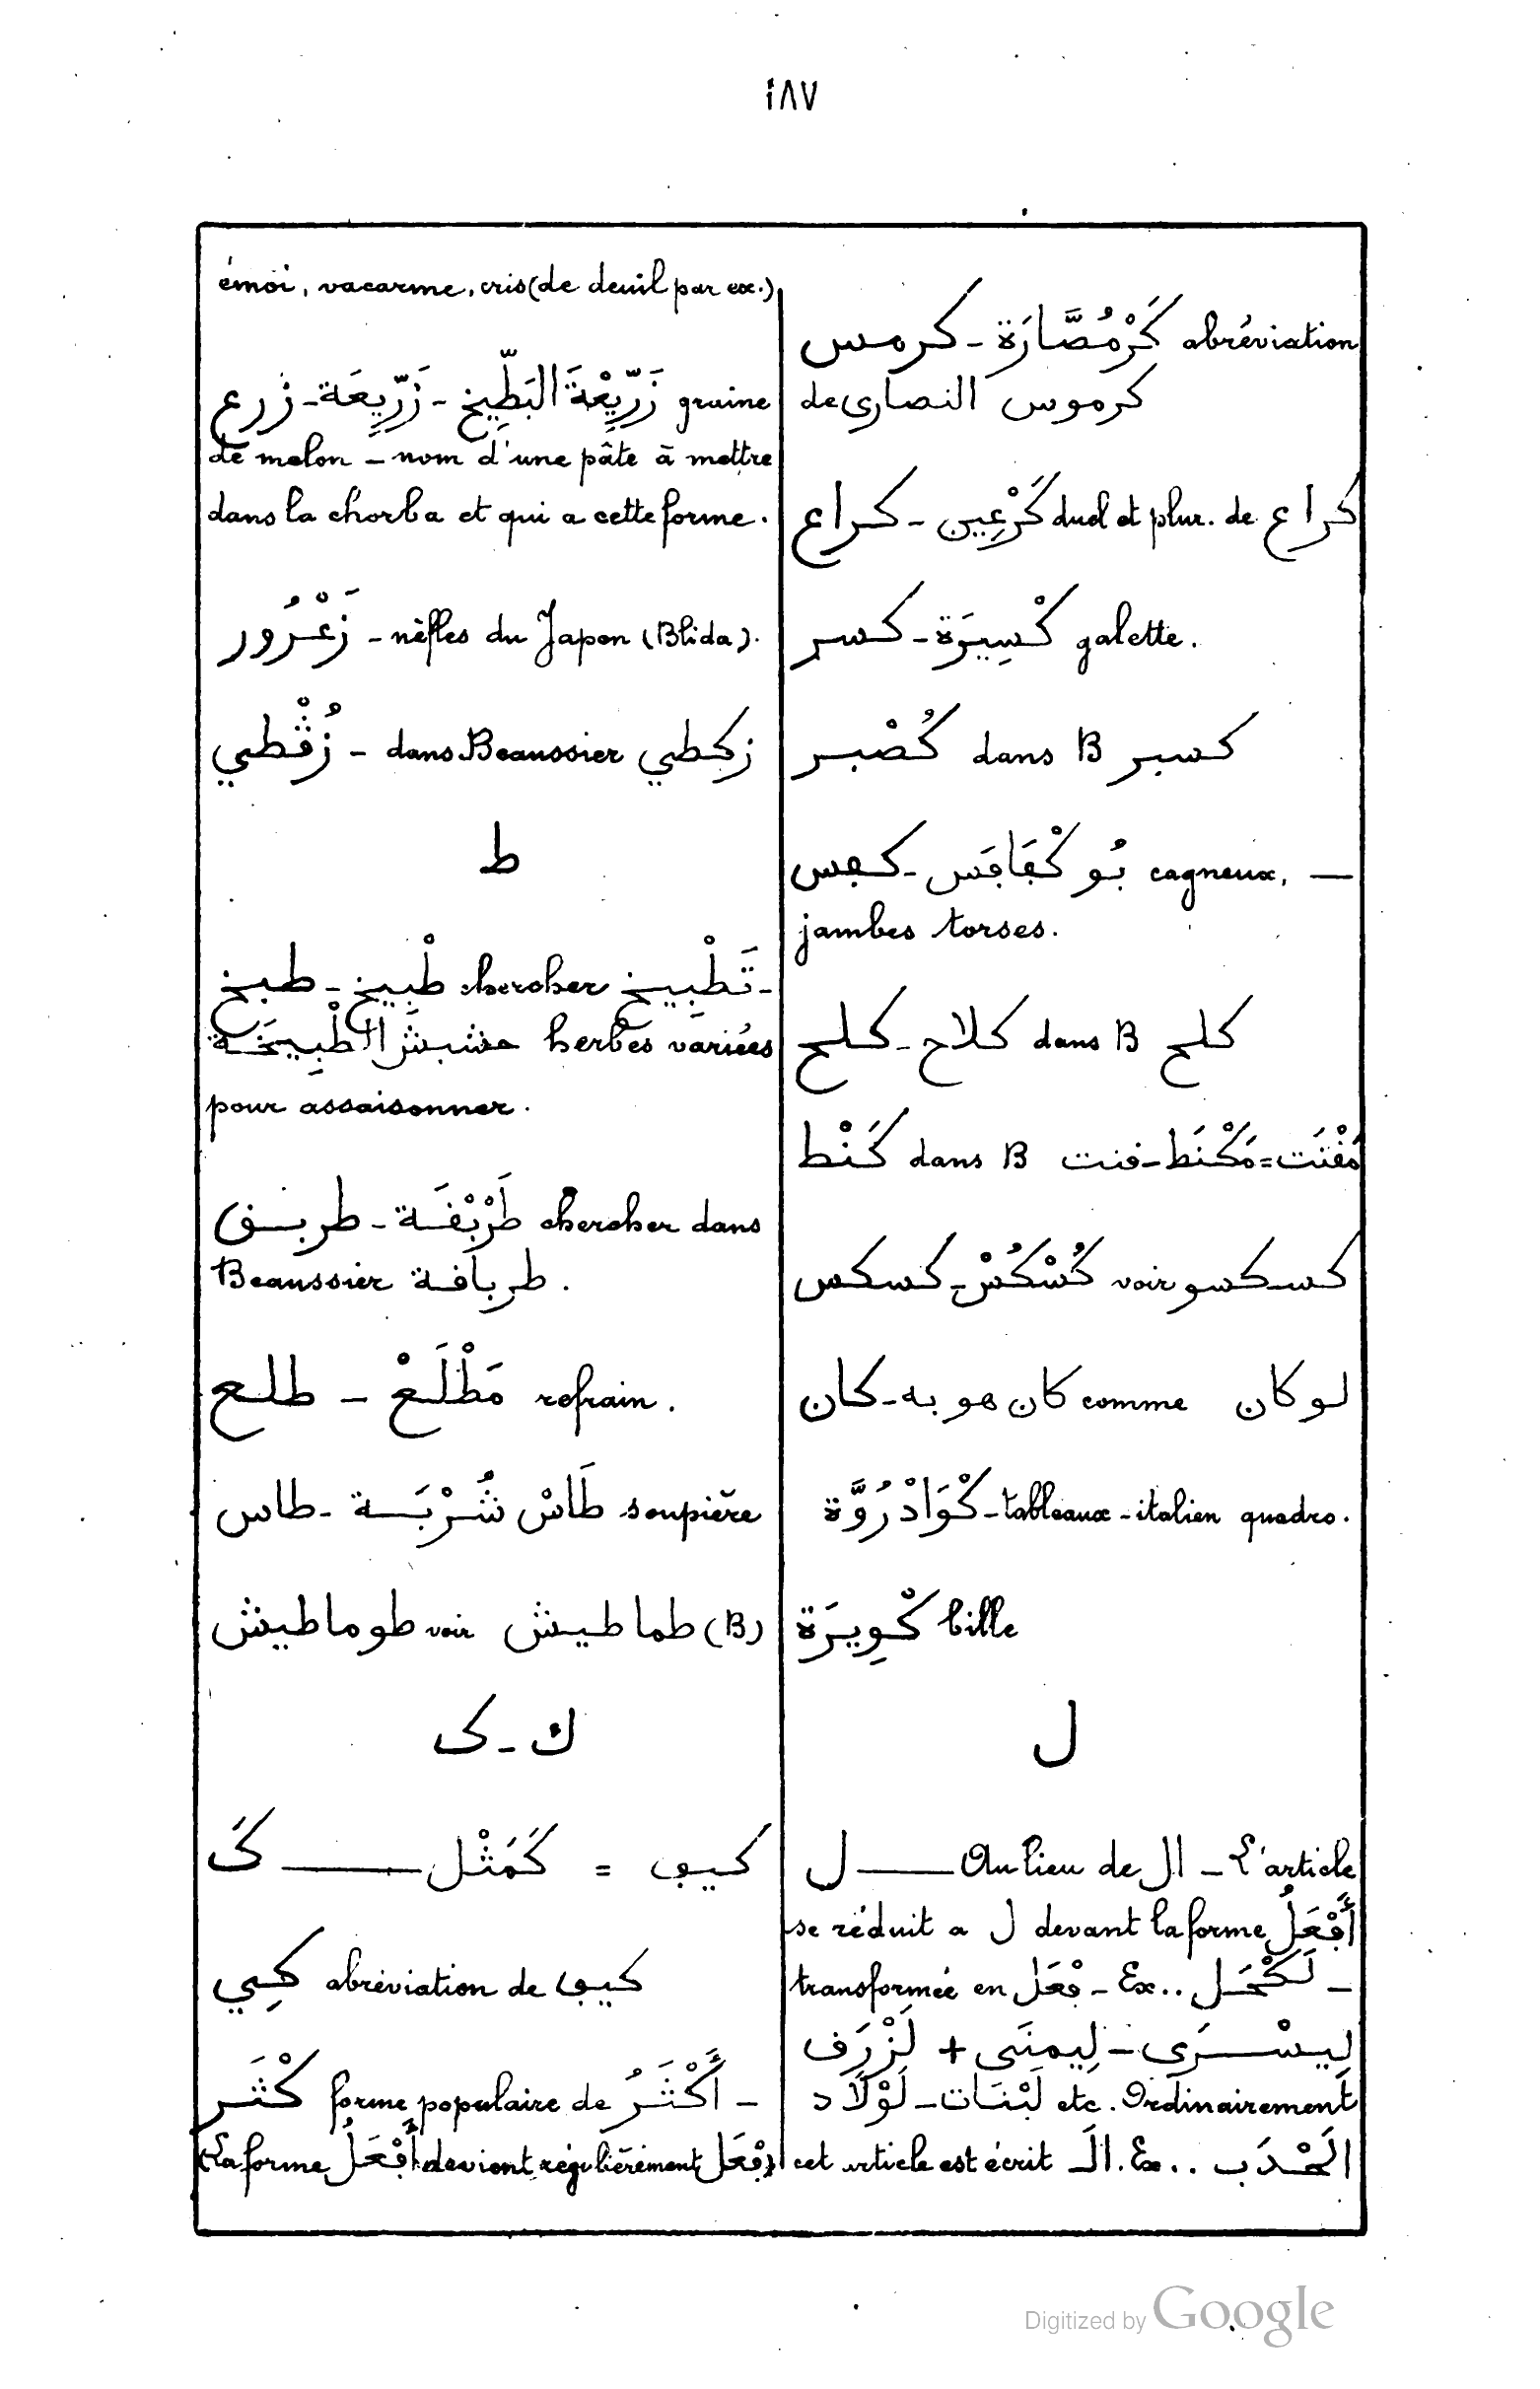 ١٨٧
émoi, vacarme, cris (de deuil par ex.)
زرع - زَرِّيعَة - زَرِّيعْةَ البَطِّيخ graine
de melon – nom d'une pâte à mettre
dans la chorba et qui a cette forme.
زَعْرُور - nèfles du Japon (Blida).
زُڨْطي - dans Beaussier زكطي
ط
طبخ - طْبِيخ chercher تَطْبِيخ -
حشيش الطْبِيخَة herbes variées
pour assaisonner.
طربق - طَرْبْقَة chercher dans
Beaussier طرباقة .
طلع – مَطْلَعْ refrain.
طاس - طَاسْ شُرْبَة soupière
طوماطيش voir طماطيش (B)
ك - ک
كَـ ــــ كَمَثْل = كيڢ
كِي abréviation de كيڢ
كْثَر forme populaire de أَكْثَرُ –
(La forme أَڢْعَلُ devient régulièrement ڢْعَل)
كرمس - كَرْمُصَّارَة abréviation
de كرموس النصارى
كراع - كَرْعِين duel et plur. de كراع
كسر - كْسِيرَة galette.
كُصْبر dans B كسبر
كڢس - بُو كْڢَاڢَس cagneux, —
jambes torses.
كلح - كلاح dans B كلح
كَنْط dans B فنت - مَكْنَط = مَفْنَت
كسكس - كُسْكُسْ voir كسكسو
كان - كان هو به comme لو كان
كْوَادْرُوَّة - tableaux - italien quadro.
كْوِيرَة bille
ل
ل ــــ Au lieu de ال – L'article
se réduit a ل devant la forme أَڢْعَلُ
transformée en ڢْعَل - Ex.. لَكْحَل –
لِيسْرَى - لِيمنَى + لَزْرَف
لَوْلَاد - لَبْنَات etc. Ordinairement
cet article est écrit الَـ. Ex.. الَحْدَب
Digitized by Google